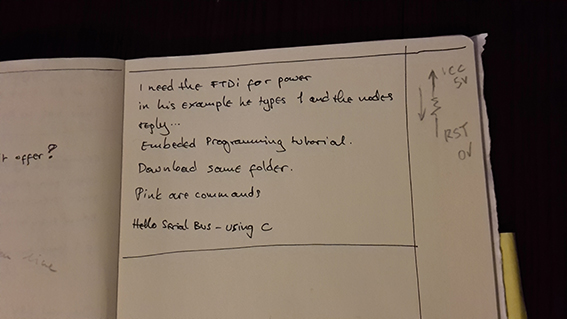 I need the FTDi for power
in his example he types 1 and the nodes
reply...
Embeded Programming tutorial.
Download same folder.
Pink are commands
Hello Serial Bus - using C
offer?
line
VCC
5V
RST
0V